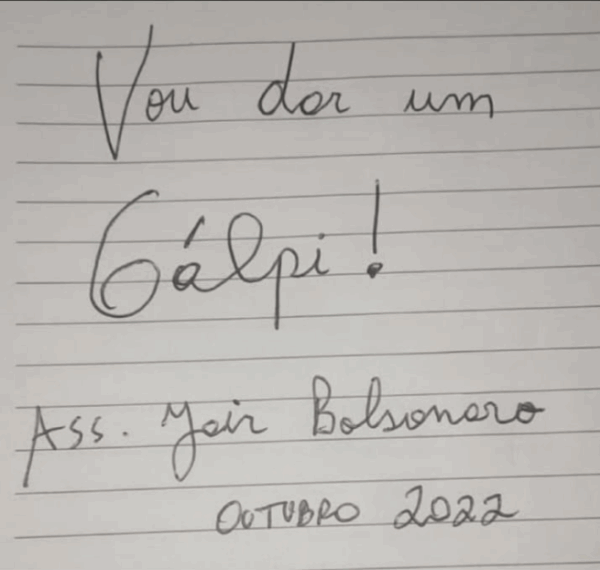 Vou dar um
Gálpi!
Ass. Jair Bolsonaro
OUTUBRO 2022